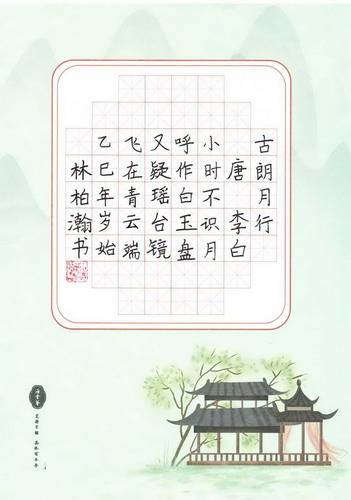 古朗月行
唐 李白
小时不识月
呼作白玉盘
又疑瑶台镜
飞在青云端
乙巳年岁始
林柏瀚书